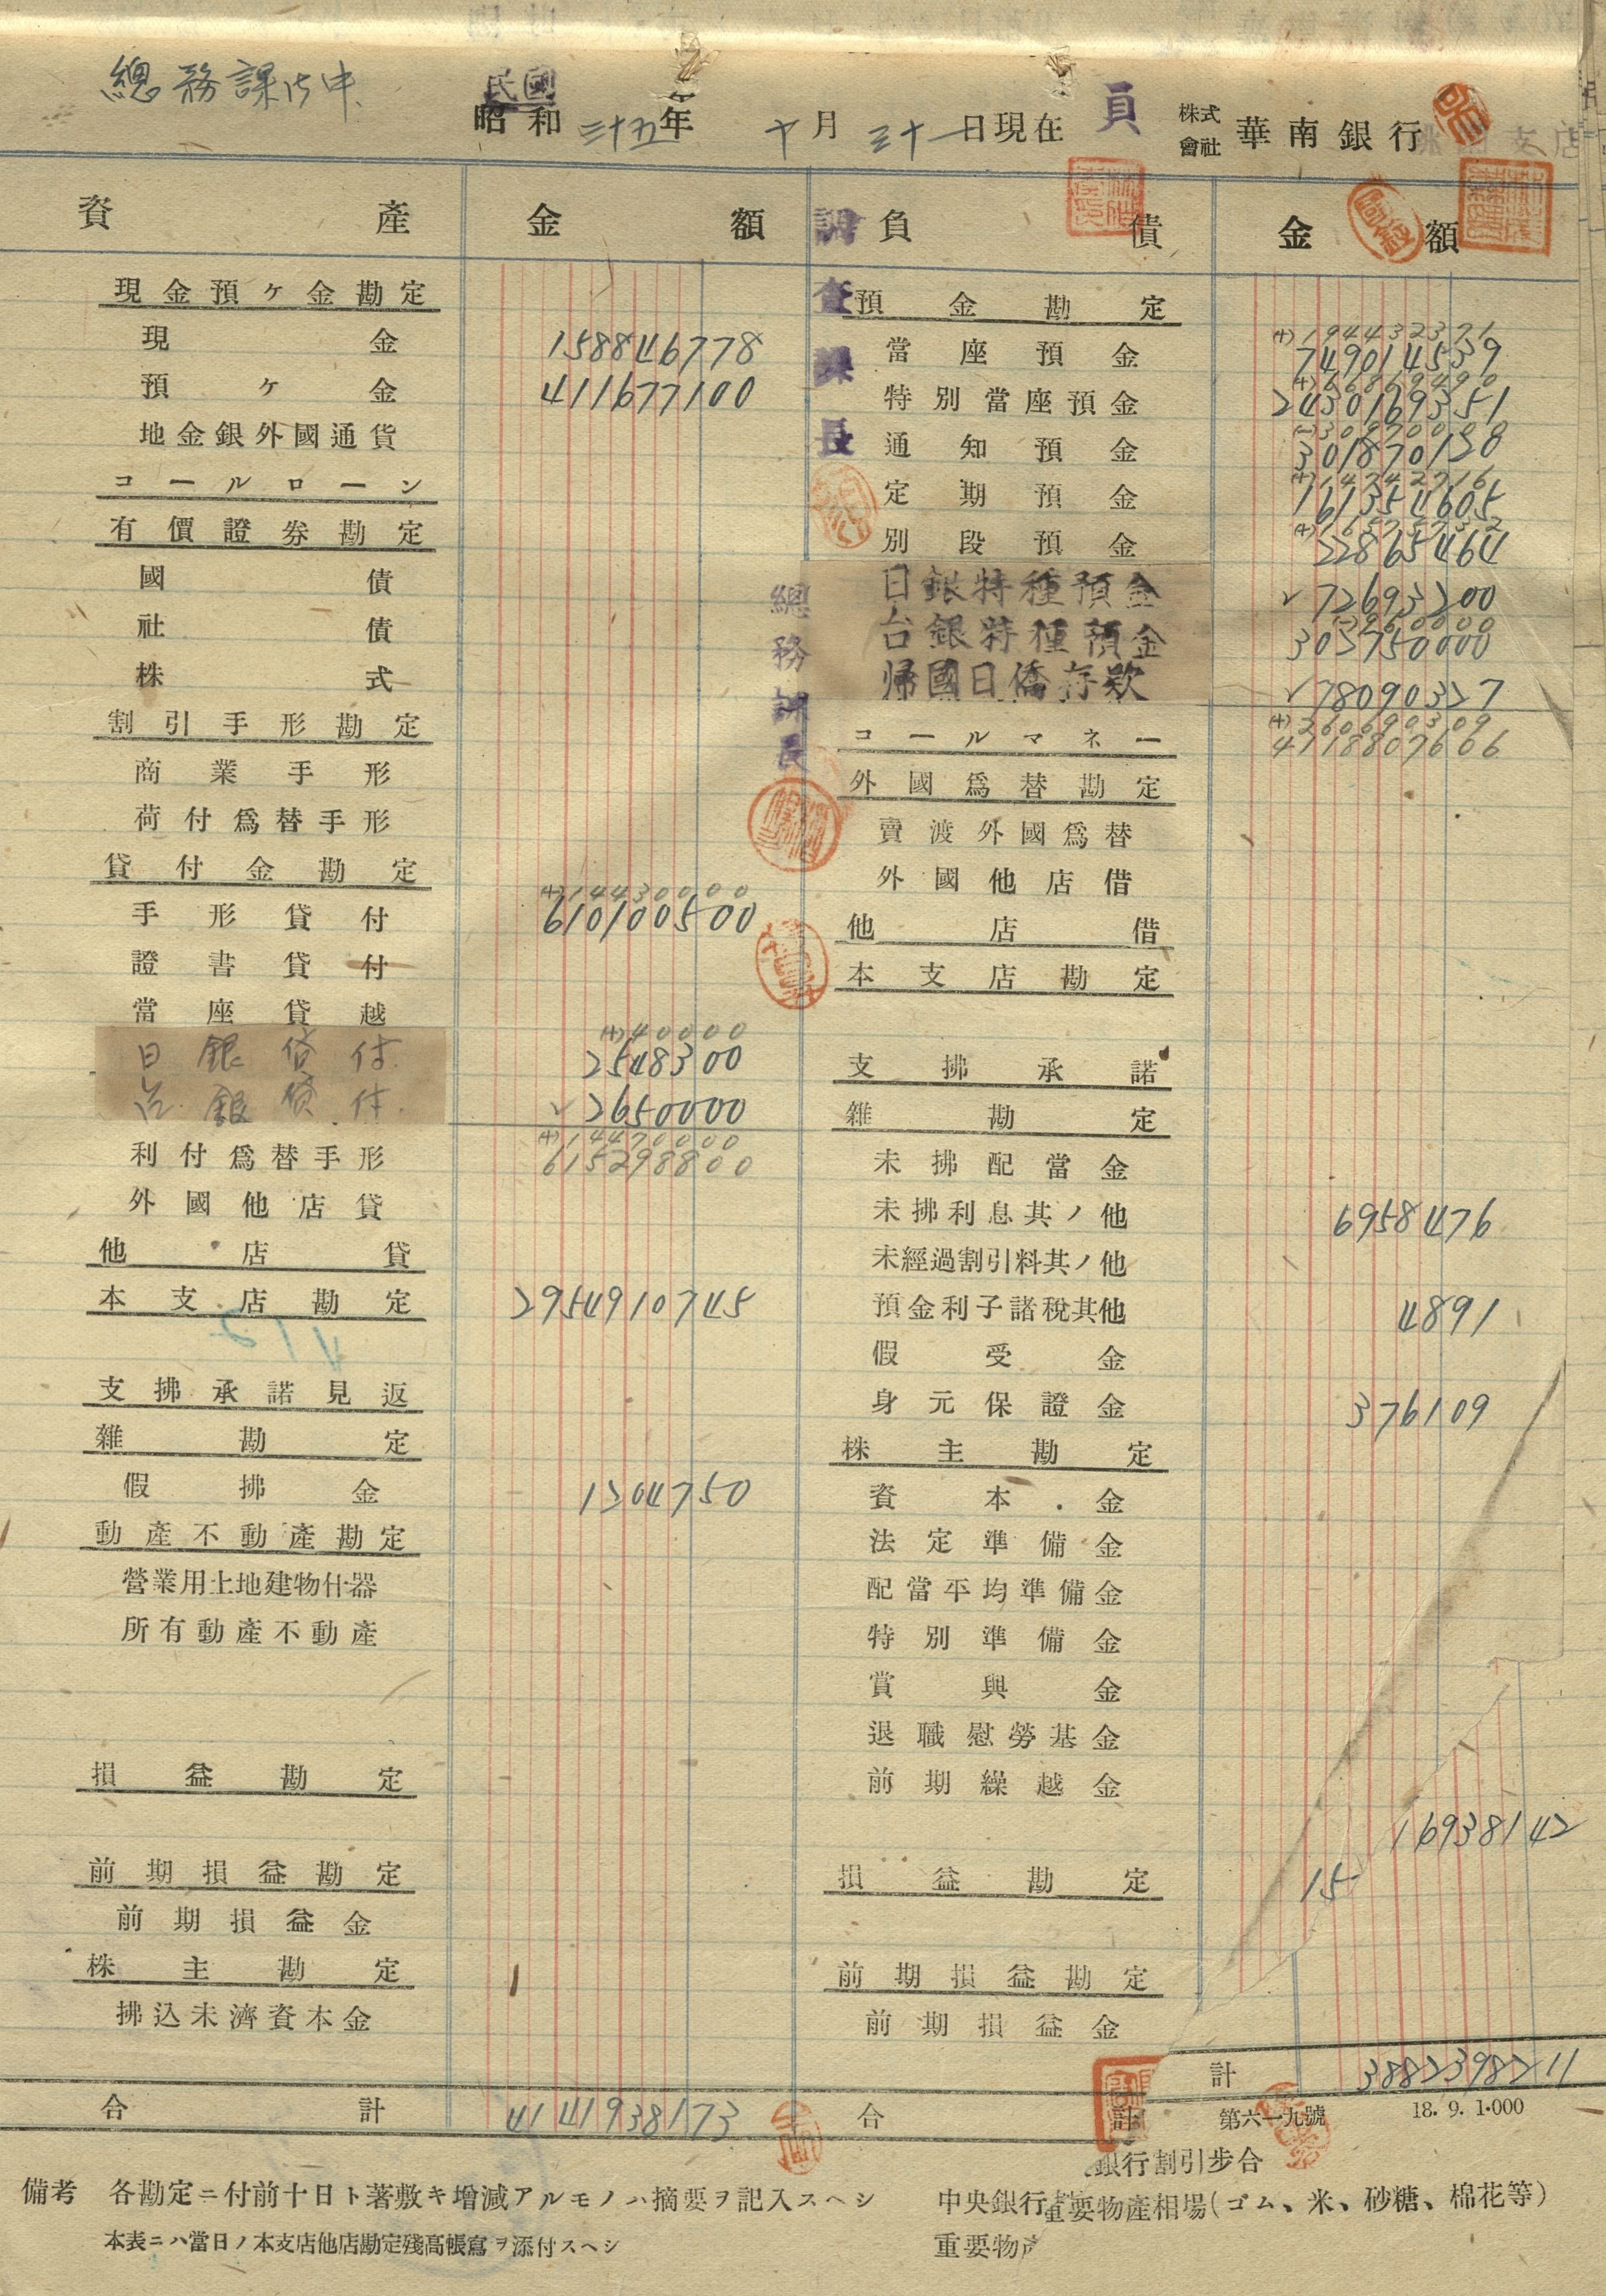 總務課御中
民國
昭和三十五年 十月三十一日現在
株式會社 華南銀行
資產 金額 負債 金額
現金預ケ金勘定
現金 158846778
預ケ金 411677100
地金銀外國通貨
コールローン
有價證券勘定
國債
社債
株式
割引手形勘定
商業手形
荷付爲替手形
貸付金勘定
(+)14430000
手形貸付 610100500
證書貸付
當座貸越
(+)40000
日銀貸付 2548300
台銀貸付 ✓2650000
(+)14470000
615298800
利付爲替手形
外國他店貸
他店貸
本支店勘定 2954910745
支拂承諾見返
雜勘定
假拂金 1204750
動產不動產勘定
營業用土地建物什器
所有動產不動產
損益勘定
前期損益勘定
前期損益金
株主勘定
拂込未濟資本金
合計 4141938173
調查課長
總務課長
預金勘定
(+)194432371
當座預金 749014539
特別當座預金 2430169351
通知預金 301870128
定期預金 161354605
別段預金 22865464
日銀特種預金 ✓72693200
台銀特種預金 303750000
帰國日僑存欵 ✓78090327
(+)260690309
4118807606
コールマネー
外國爲替勘定
賣渡外國爲替
外國他店借
他店借
本支店勘定
支拂承諾
雜勘定
未拂配當金
未拂利息其ノ他 6958476
未經過割引料其ノ他
預金利子諸稅其他 4891
假受金
身元保證金 376109
株主勘定
資本金
法定準備金
配當平均準備金
特別準備金
賞與金
退職慰勞基金
前期繰越金
16938142
損益勘定 15
前期損益勘定
前期損益金
計 3882398211
合計
第六一九號 18.9.1.000
備考 各勘定ニ付前十日ト著敷キ增減アルモノハ摘要ヲ記入スヘシ
本表ニハ當日ノ本支店他店勘定殘高帳寫ヲ添付スヘシ
銀行割引步合
中央銀行
重要物產相場(ゴム、米、砂糖、棉花等)
重要物